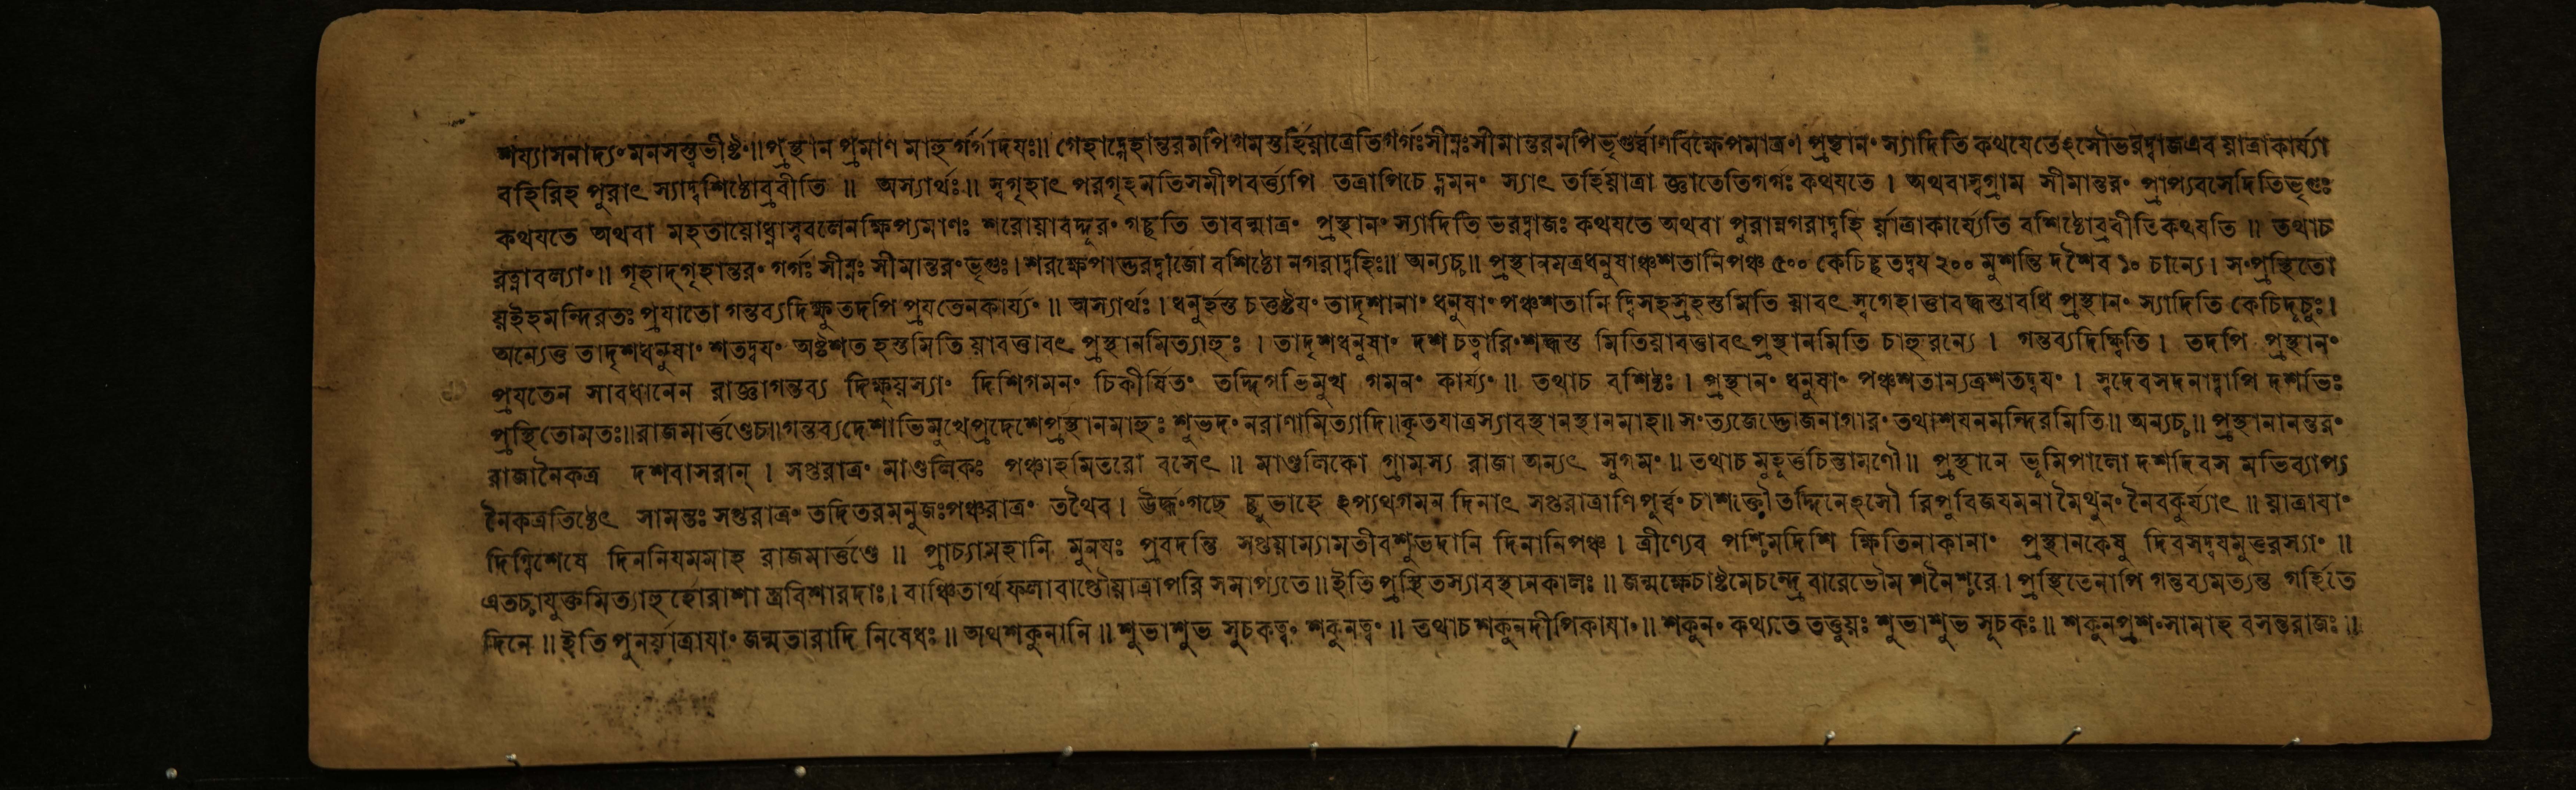 শয্যাসনাদ্যং মনসস্ত্বভীষ্টং॥ প্রস্থান প্রমাণ মাহু র্গর্গাদযঃ॥ গেহাদ্গেহান্তরমপি গমস্তর্হিয়াত্রেতিগর্গঃসীম্নঃসীমান্তরমপিভৃগুর্ব্বাণবিক্ষেপমাত্রং। প্রস্থানং স্যাদিতি কথযেতেঽসৌভরদ্বাজএব য়াত্রাকার্য্যা
বহিরিহ পুরাৎ স্যাদ্বশিষ্ঠোব্রবীতি ॥ অস্যার্থঃ॥ স্বগৃহাৎ পরগৃহমতিসমীপবর্ত্ত্যপি তত্রাপিচে দ্গমনং স্যাৎ তর্হিয়াত্রা জ্ঞাতেতিগর্গঃ কথযতে । অথবাস্বগ্রাম সীমান্তরং প্রাপ্যবসেদিতিভৃগুঃ
কথযতে অথবা মহতায়োধ্নাস্ববলেনক্ষিপ্যমাণঃ শরোয়াবদ্দূরং গচ্ছতি তাবন্মাত্রং প্রস্থানং স্যাদিতি ভরদ্বাজঃ কথযতে অথবা পুরান্নগরাদ্বহি র্য়াত্রাকার্য্যেতি বশিষ্ঠোব্রবীতি কথযতি ॥ তথাচ
রত্নাবল্যাং॥ গৃহাদ্গৃহান্তরং গর্গঃ সীম্নঃ সীমান্তরং ভৃগুঃ। শরক্ষেপাদ্ভরদ্বাজো বশিষ্ঠো নগরাদ্বহিঃ॥ অন্যচ্চ॥ প্রস্থানমত্রধনুষাঞ্চশতানিপঞ্চ ৫০০ কেচিচ্ছতদ্বয ২০০ মুশন্তি দশৈব ১০ চান্যে। সংপ্রস্থিতো
য়ইহমন্দিরতঃ প্রযাতো গন্তব্যদিক্ষু তদপি প্রযতেনকার্য্যং ॥ অস্যার্থঃ। ধনুর্হস্ত চতুষ্টযং তাদৃশানাং ধনুষাং পঞ্চশতানি দ্বিসহস্রহস্তমিতি য়াবৎ স্বগেহাত্তাবদ্ধস্তাবধি প্রস্থানং স্যাদিতি কেচিদূচুঃ।
অন্যেতু তাদৃশধনুষাং শতদ্বযং অষ্টশত হস্তমিতি য়াবত্তাবৎ প্রস্থানমিত্যাহুঃ । তাদৃশধনুষাং দশ চত্বারিংশদ্ধস্ত মিতিয়াবত্তাবৎ প্রস্থানমিতি চাহুরন্যে । গন্তব্যদিক্ষ্বিতি। তদপি প্রস্থানং
প্রযতেন সাবধানেন রাজ্ঞাগন্তব্য দিক্ষুয়স্যাং দিশিগমনং চিকীর্ষিতং তদ্দিগভিমুখ গমনং কার্য্যং ॥ তথাচ বশিষ্ঠঃ। প্রস্থানং ধনুষাং পঞ্চশতান্যত্রশতদ্বযং । স্বদেবসদনাদ্বাপি দশভিঃ
প্রস্থিতোমতঃ॥ রাজমার্ত্তণ্ডেচ॥ গন্তব্যদেশাভিমুখেপ্রদেশেপ্রস্থানমাহুঃ শুভদং নরাণামিত্যাদি॥ কৃতযাত্রস্যাবস্থানস্থানমাহ॥ সংত্যজেদ্ভোজনাগারং তথাশযনমন্দিরমিতি॥ অন্যচ্চ॥ প্রস্থানানন্তরং
রাজানৈকত্র দশবাসরান্ । সপ্তরাত্রং মাণ্ডলিকঃ পঞ্চাহমিতরো বসেৎ ॥ মাণ্ডলিকো গ্রামস্য রাজা অন্যৎ সুগমং ॥ তথাচ মুহূর্ত্তচিন্তামণৌ॥ প্রস্থানে ভূমিপালো দশদিবস মভিব্যাপ্য
নৈকত্রতিষ্ঠেৎ সামন্তঃ সপ্তরাত্রং তদিতরমনুজঃপঞ্চরাত্রং তথৈব। ঊর্দ্ধ্বংগছে চ্ছুভাহে ঽপ্যথগমন দিনাৎ সপ্তরাত্রাণি পূর্ব্বং চাশক্তৌ তদ্দিনেঽসৌ রিপুবিজযমনা মৈথুনং নৈবকুর্য্যাৎ ॥ য়াত্রাযাং
দিগ্বিশেষে দিননিযমমাহ রাজমার্ত্তণ্ডে ॥ প্রাচ্যামহানি মুনযঃ প্রবদন্তি সপ্তয়াম্যামতীবশুভদানি দিনানিপঞ্চ। ত্রীণ্যেব পশ্চিমদিশি ক্ষিতিনাকানাং প্রস্থানকেষু দিবসদ্বযমুত্তরস্যাং ॥
এতচ্চাযুক্তমিত্যাহু র্হোরাশা স্ত্রবিশারদাঃ। বাঞ্চিতার্থ ফলাবাপ্তৌয়াত্রাপরি সমাপ্যতে॥ ইতি প্রস্থিতস্যাবস্থানকালঃ ॥ জন্মর্ক্ষেচাষ্টমেচন্দ্রে বারেভৌম শনৈশ্চরে। প্রস্থিতেনাপি গন্তব্যমত্যন্ত গর্হিতে
দিনে ॥ ইতি পুনর্য়াত্রাযাং জন্মতারাদি নিষেধঃ ॥ অথশকুনানি ॥ শুভাশুভ সুচকত্বং শকুনত্বং ॥ তথাচ শকুনদীপিকাযাং॥ শকুনং কথ্যতে তত্তুয়ঃ শুভাশুভ সূচকঃ॥ শকুনপ্রশংসামাহ বসন্তরাজঃ॥